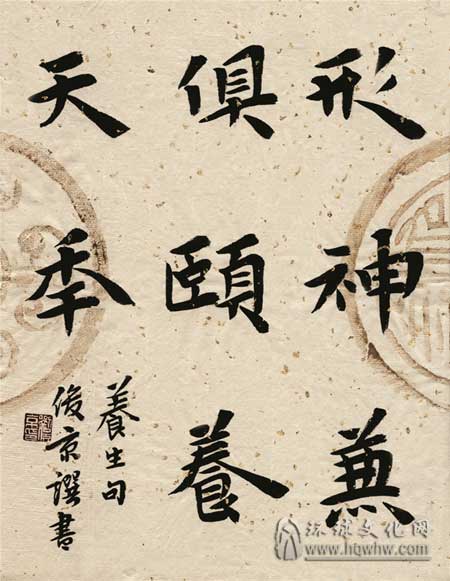 形神兼
俱頤養
天年
養生句
俊京譔書
环球文化网
www.hqwhw.com